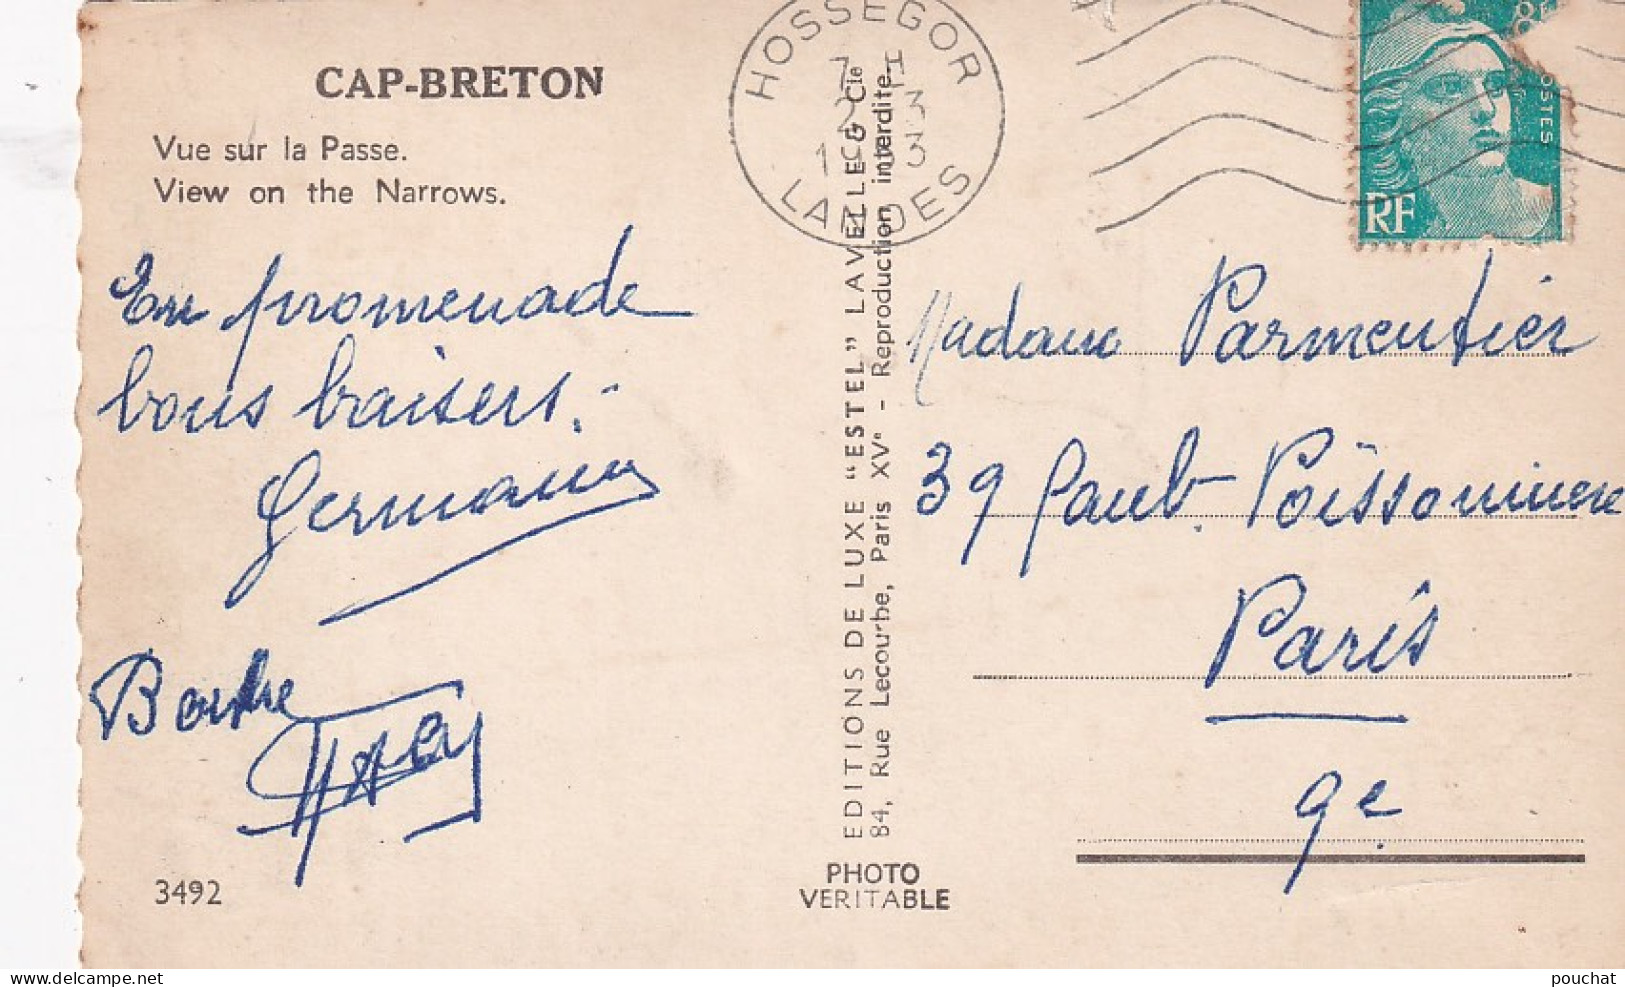 CAP-BRETON
Vue sur la Passe.
View on the Narrows.
En promenade
bons baisers.-
Germaine
Berthe
3492
HOSSEGOR
LANDES
EDITIONS DE LUXE "ESTEL" LAVELLE & Cie
84, Rue Lecourbe, Paris XVe - Reproduction interdite
PHOTO
VERITABLE
POSTES
RF
Madame Parmentier
39 Faub. Poissonniere
Paris
9e
pouchat